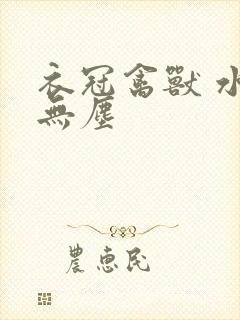 衣冠禽獸 水
無塵
農惠民